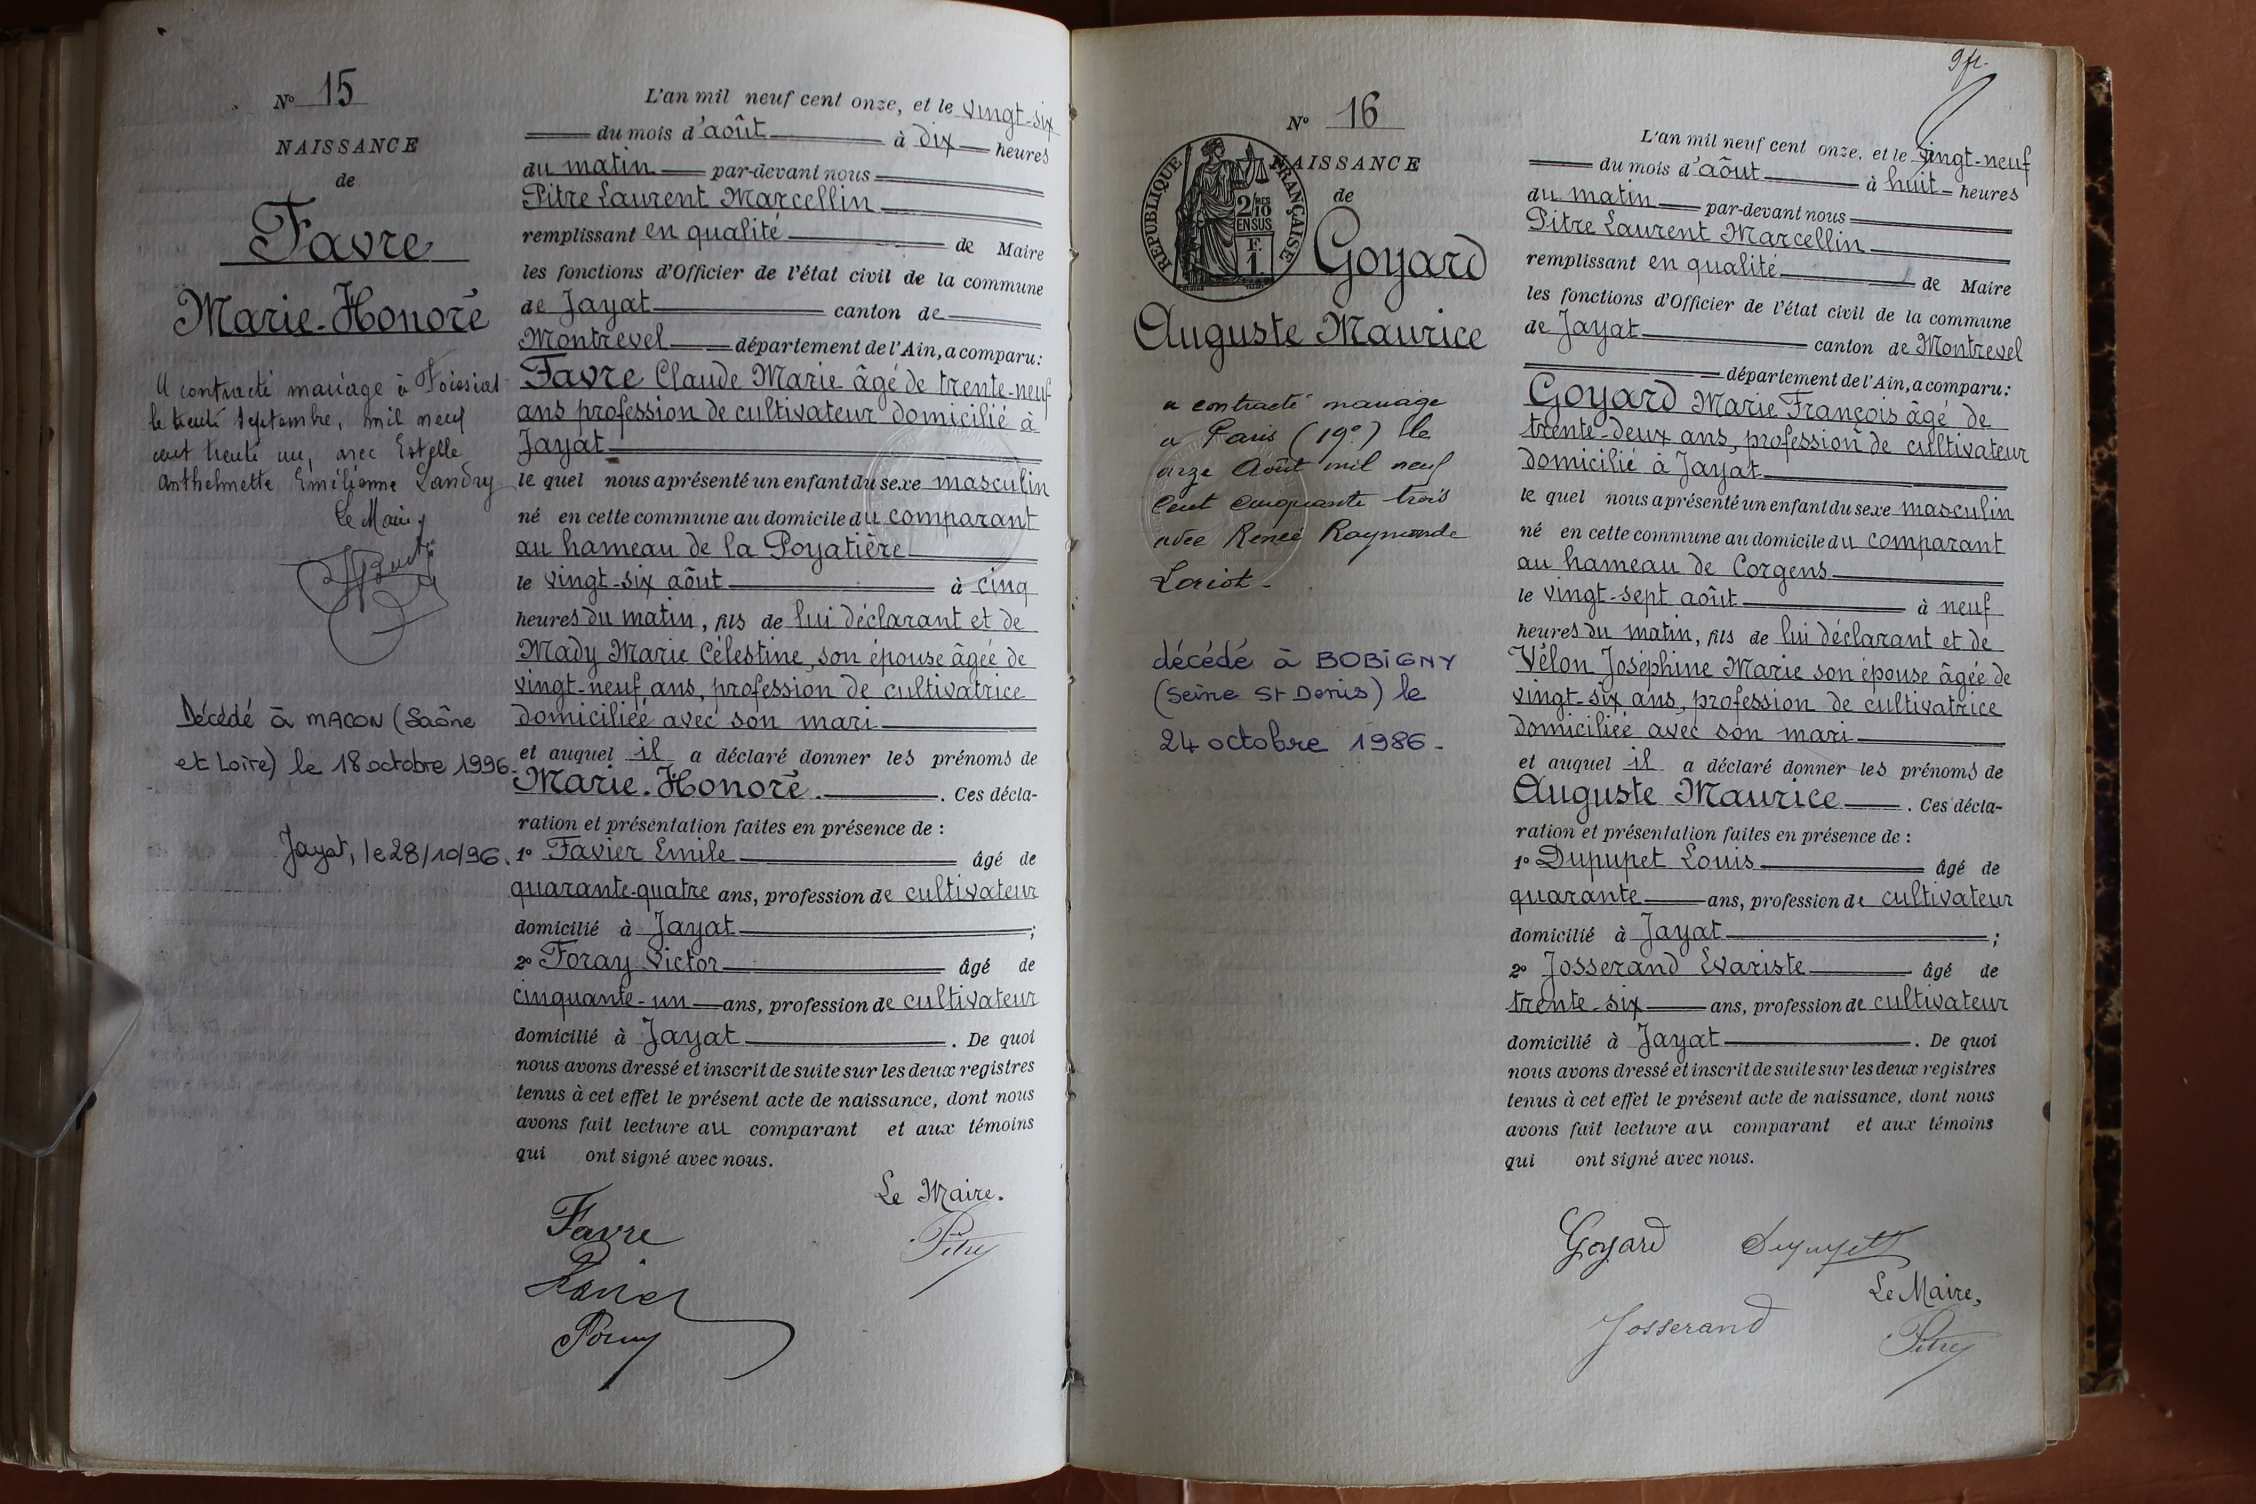 N° 15
NAISSANCE
de
Favre
Marie-Honoré
A contracté mariage à Foissiat
le trente septembre, mil neuf
cent trente un, avec Estelle
Anthelmette Emélienne Landry
Le Maire
Décédé à MACON (Saône
et Loire) le 18 octobre 1996.
Jayat, le 28/10/96.
L'an mil neuf cent onze, et le vingt-six
du mois d'août à dix heures
du matin par-devant nous
Pitre Laurent Marcellin
remplissant en qualité de Maire
les fonctions d'Officier de l'état civil de la commune
de Jayat canton de
Montrevel département de l'Ain, a comparu:
Favre Claude Marie âgé de trente-neuf
ans profession de cultivateur domicilié à
Jayat
le quel nous a présenté un enfant du sexe masculin
né en cette commune au domicile du comparant
au hameau de la Poyatière
le vingt-six août à cinq
heures du matin, fils de lui déclarant et de
Mady Marie Célestine, son épouse âgée de
vingt-neuf ans, profession de cultivatrice
domiciliée avec son mari
et auquel il a déclaré donner les prénoms de
Marie-Honoré. Ces décla-
ration et présentation faites en présence de :
1° Favier Emile âgé de
quarante-quatre ans, profession de cultivateur
domicilié à Jayat ;
2° Foray Victor âgé de
cinquante-un ans, profession de cultivateur
domicilié à Jayat . De quoi
nous avons dressé et inscrit de suite sur les deux registres
tenus à cet effet le présent acte de naissance, dont nous
avons fait lecture au comparant et aux témoins
qui ont signé avec nous.
Le Maire.
Favre
Pitre
Favier
Foray
9 fe.
N° 16
NAISSANCE
de
RÉPUBLIQUE FRANÇAISE
2/10 EN SUS
F. 1.
Goyard
Auguste Maurice
a contracté mariage
à Paris (19e) le
onze Août mil neuf
cent cinquante trois
avec Renée Raymonde
Loriot -
décédé à BOBIGNY
(Seine St Denis) le
24 octobre 1986 -
L'an mil neuf cent onze, et le vingt-neuf
du mois d'août à huit heures
du matin par-devant nous
Pitre Laurent Marcellin
remplissant en qualité de Maire
les fonctions d'Officier de l'état civil de la commune
de Jayat canton de Montrevel
département de l'Ain, a comparu:
Goyard Marie François âgé de
trente-deux ans, profession de cultivateur
domicilié à Jayat
le quel nous a présenté un enfant du sexe masculin
né en cette commune au domicile du comparant
au hameau de Corgens
le vingt-sept août à neuf
heures du matin, fils de lui déclarant et de
Vélon Joséphine Marie son épouse âgée de
vingt-six ans, profession de cultivatrice
domiciliée avec son mari
et auquel il a déclaré donner les prénoms de
Auguste Maurice . Ces décla-
ration et présentation faites en présence de :
1° Dupupet Louis âgé de
quarante ans, profession de cultivateur
domicilié à Jayat ;
2° Josserand Evariste âgé de
trente-six ans, profession de cultivateur
domicilié à Jayat . De quoi
nous avons dressé et inscrit de suite sur les deux registres
tenus à cet effet le présent acte de naissance, dont nous
avons fait lecture au comparant et aux témoins
qui ont signé avec nous.
Goyard Dupupet
Le Maire,
Josserand
Pitre